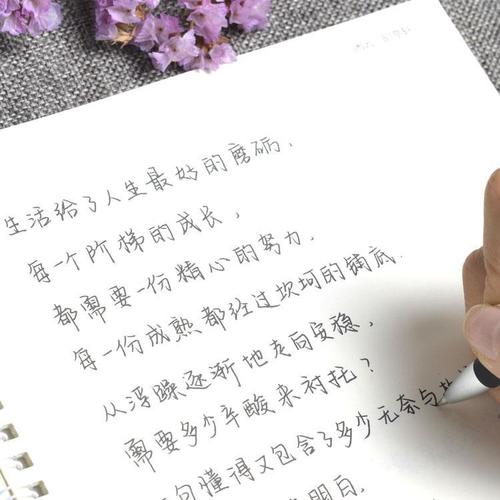 生活给了人生最好的磨砺,
每一个阶梯的成长,
都需要一份精心的努力.
每一份成熟都经过坎坷的铺底.
从浮躁逐渐地走向安稳,
需要多少辛酸来衬托?
句懂得又包含了多少无奈与
明白.